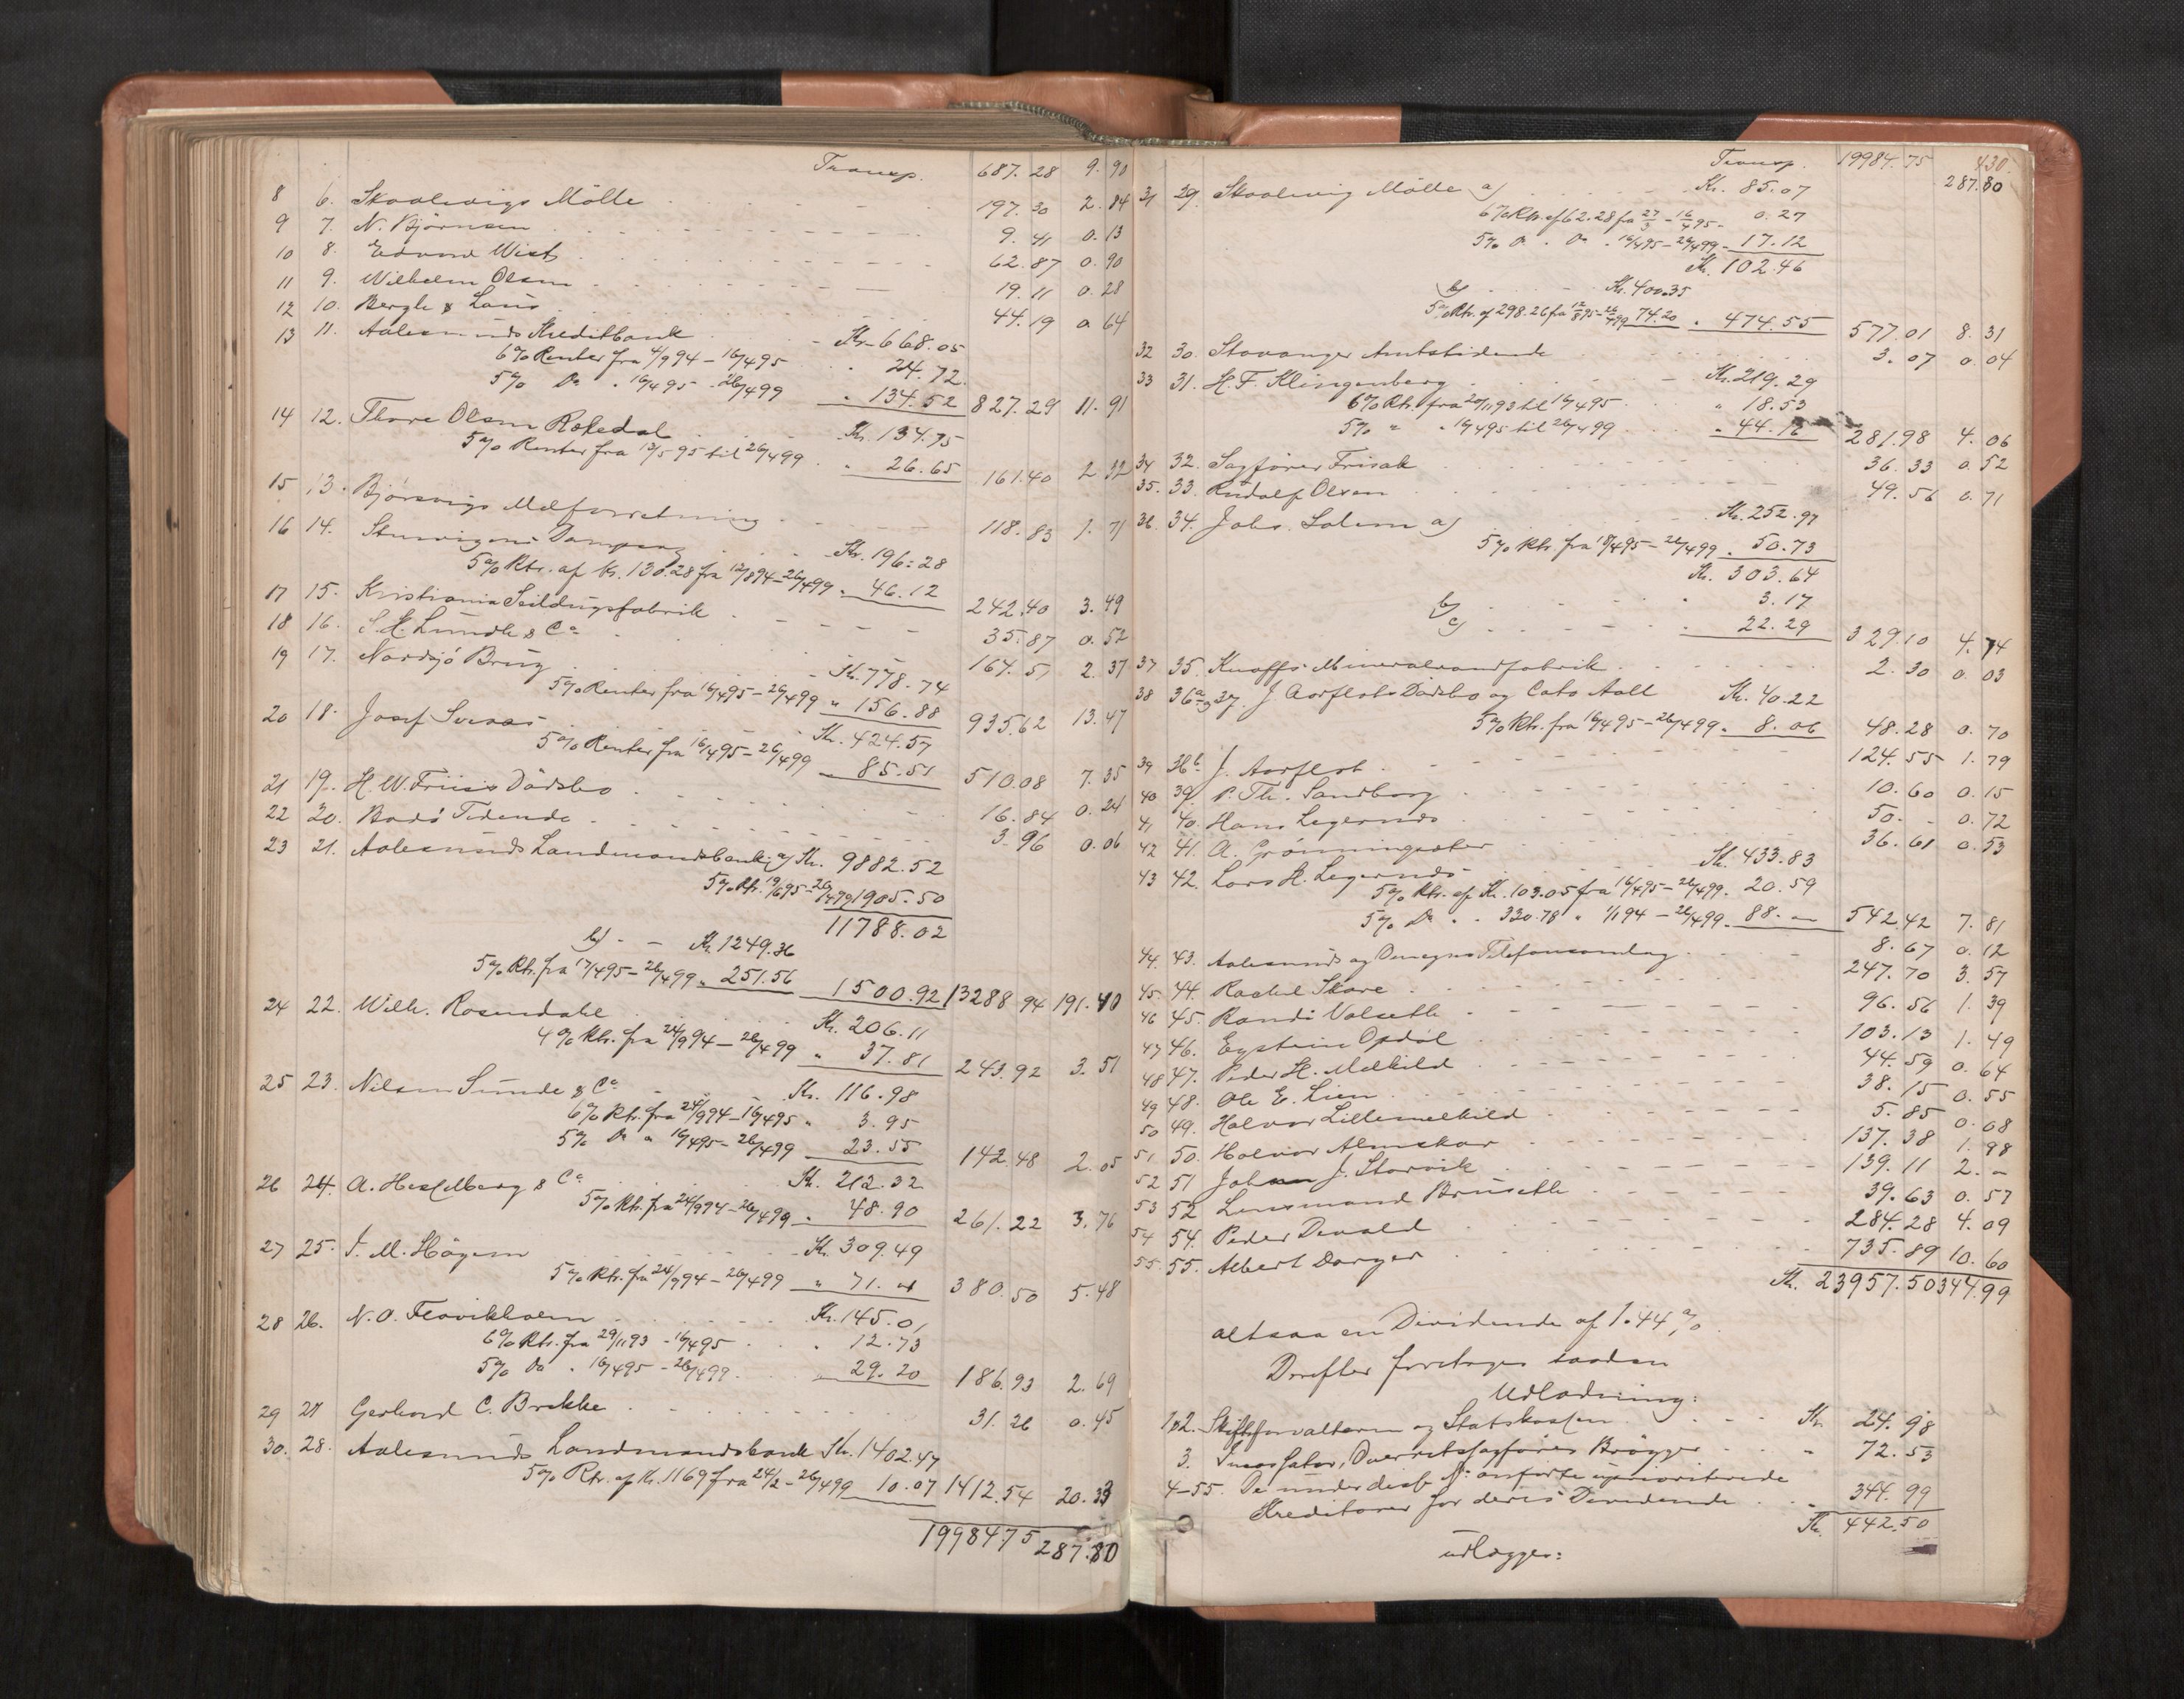 Transp. 687.28 9.90
8 6. Skaalvigs Mölle 197.30 2.84
9 7. N. Björnsen 9.41 0.13
10 8. Edvard Wist 62.87 0.90
11 9. Wilhelm Olsen 19.11 0.28
12 10. Bergh & Lous 44.19 0.64
13 11. Aalesunds Kreditbank Kr. 668.05
6% Renter fra 4/9 94 - 16/4 95 " 24.72
5% Do " 16/4 95 - 26/4 99 " 134.52 827.29 11.91
14 12. Thore Olsen Rekedal Kr. 134.75
5% Renter fra 12/5 95 til 26/4 99 " 26.65 161.40 2.32
15 13. Björsvigs Melforretning 118.83 1.71
16 14. Kr. 196.28
5% Rtr. af Kr. 130.28 fra 12/8 94 - 26/4 99 " 46.12 242.40 3.49
17 15. Kristiania Seildugsfabrik 35.87 0.52
18 16. S. H. Lundh & Co 164.57 2.37
19 17. Nordsjö Brug Kr. 778.74
5% Renter fra 16/4 95 - 26/4 99 " 156.88 935.62 13.47
20 18. Josef Kr. 424.57
5% Renter fra 16/4 95 - 26/4 99 85.51 510.08 7.35
21 19. H. W. Friis Dödsbo 16.84 0.24
22 20. Bodö Tidende 3.96 0.06
23 21. Aalesunds Landmandsbank a) Kr. 9882.52
5% Rtr. 19/6 95 - 26/4 99 1905.50
11788.02
b) - - Kr. 1249.36
5% Rtr. fra 17/4 95 - 26/4 99 " 251.56 1500.92 13288.94 191.40
24 22. Wilh. Rosendahl Kr. 206.11
4% Rtr. fra 24/9 94 - 26/4 99 " 37.81 243.92 3.51
25 23. Nilsen Sunde & Co Kr. 116.98
6% Rtr. fra 24/9 94 - 16/4 95 " 3.95
5% Do " 16/4 95 - 26/4 99 23.55 142.48 2.05
26 24. A. Hesselberg & Co Kr. 212.32
5% Rtr. fra 24/9 94 - 26/4 99 " 48.90 261.22 3.76
27 25. J. M. Högem Kr. 309.49
5% Rtr. fra 24/9 94 - 26/4 99 " 71.01 380.50 5.48
28 26. N. O. Flovikholm Kr. 145.01
6% Rtr. fra 29/11 93 - 16/4 95 " 12.73
5% Do " 16/4 95 - 26/4 99 29.20 186.93 2.69
29 27 Gerhard C. Brekke 31.26 0.45
30. 28. Aalesunds Landmandsbank Kr. 1402.47
5% Rtr. af Kr. 1169 fra 24/2 - 26/4 99 10.07 1412.54 20.33
19984.75 287.80
430.
Transp. 19984.75 287.80
31 29. Skaalvig Mölle a) Kr. 85.07
6% Rtr. af 62.28 fra 27/3 - 16/4 95 - 0.27
5% Do " Do " 16/4 95 - 26/4 99 - 17.12
Kr. 102.46
b) Kr. 400.35
5% Rtr. af 298.26 fra 12/8 95 - 26/4 99 74.20 " 474.55 577.01 8.31
32 30. Stavanger Amtstidende 3.07 0.04
33 31. H. F. Klingenberg Kr. 219.29
6% Rtr. fra 20/11 93 til 16/4 95 " 18.53
5% " " 16/4 95 til 26/4 99 " 44.16 281.98 4.06
34 32. Sagförer Frisak 36.33 0.52
35. 33. Rudolf Olsen 49.56 0.71
36. 34. Johs. Solem a) Kr. 252.97
5% Rtr. fra 18/4 95 - 26/4 99 " 50.73
Kr. 303.64
b) " 3.17
c) " 22.29 329.10 4.74
37 35. Knoffs Mineralvandfabrik 2.30 0.03
38 36a og 37. J. Aarflots Dödsbo og Cato Aall Kr. 40.22
5% Rtr. fra 16/4 95 - 26/4 99 " 8.06 48.28 0.70
39 36b. J. Aarflot 124.55 1.79
40 39. P. Th. Sandborg 10.60 0.15
41 40. Hans Legernes 50. - 0.72
42 41. A. Grönningsæter 36.61 0.53
43 42. Lars H. Legernes Kr. 433.83
5% Rtr. af Kr. 103.05 fra 16/4 95 - 26/4 99 " 20.59
5% Do " " 330.78 " 1/1 94 - 26/4 99 " 88. - 542.42 7.81
44. 43. Aalesunds og Omegns Telefonsamlag 8.67 0.12
45. 44. Rachel Skare 247.70 3.57
46 45. Randi Valseth 96.56 1.39
47 46. Eystein Opdöl 103.13 1.49
48 47. Peder H. Melkild 44.59 0.64
49 48. Ole E. Lien 38.15 0.55
50 49. Halvor Lillemelkild 5.85 0.08
51 50. Halvor Almskar 137.38 1.98
52 51 Johan J. Storvik 139.11 2. -
53 52 Lensmand Bruseth 39.63 0.57
54 54. Peder Devold 284.28 4.09
55. 55. Albert Dorger 735.89 10.60
Kr. 23957.50 344.99
altsaa en Dividende af 1.44%.
Derefter foretoges saadan
Udlodning:
1 & 2. Skifteforvalteren og Statskassen Kr. 24.98
3. Incassator, Overretssagförer Brögger " 72.53
4-55. De under desb No anförte uprioriterede
Kreditorer for deres Dividende " 344.99
Kr. 442.50
udlægges: